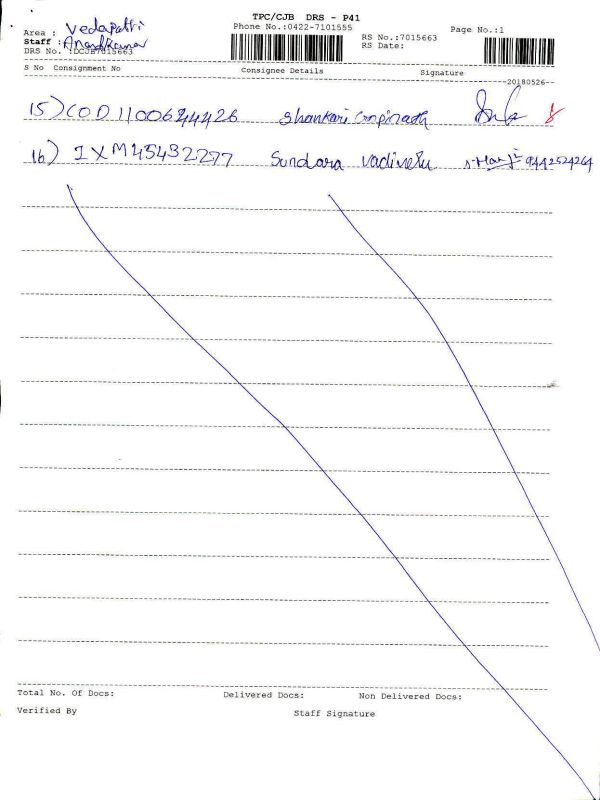 TPC/CJB DRS - P41
Phone No.:0422-7101555
Page No.:1
Area : Vedapatti
Staff : Anandkumar
RS No.:7015663
RS Date:
DRS No. :DCJB7015663
S No Consignment No Consignee Details Signature
20180526
15) COD1100644426 Shankari Gopinath
16) IXM45432277 Sundara Vadivelu 9442524264
Total No. Of Docs: Delivered Docs: Non Delivered Docs:
Verified By Staff Signature